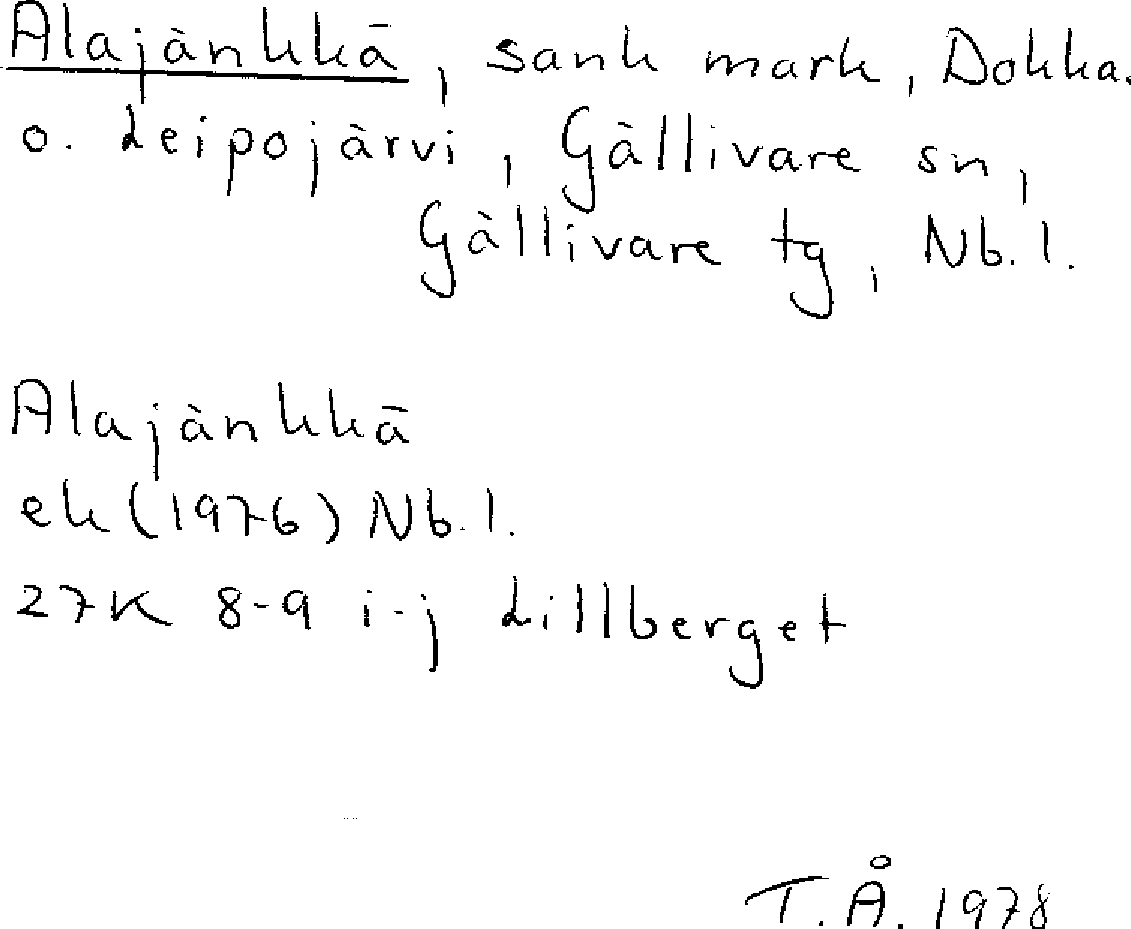 Alajänkkä, sank mark, Dokka.
o. Leipojärvi, Gällivare sn,
Gällivare tg, Nb. l.
Alajänkkä
ek (1976) Nb. l.
27K 8-9 i-j Lillberget
T.Å. 1978